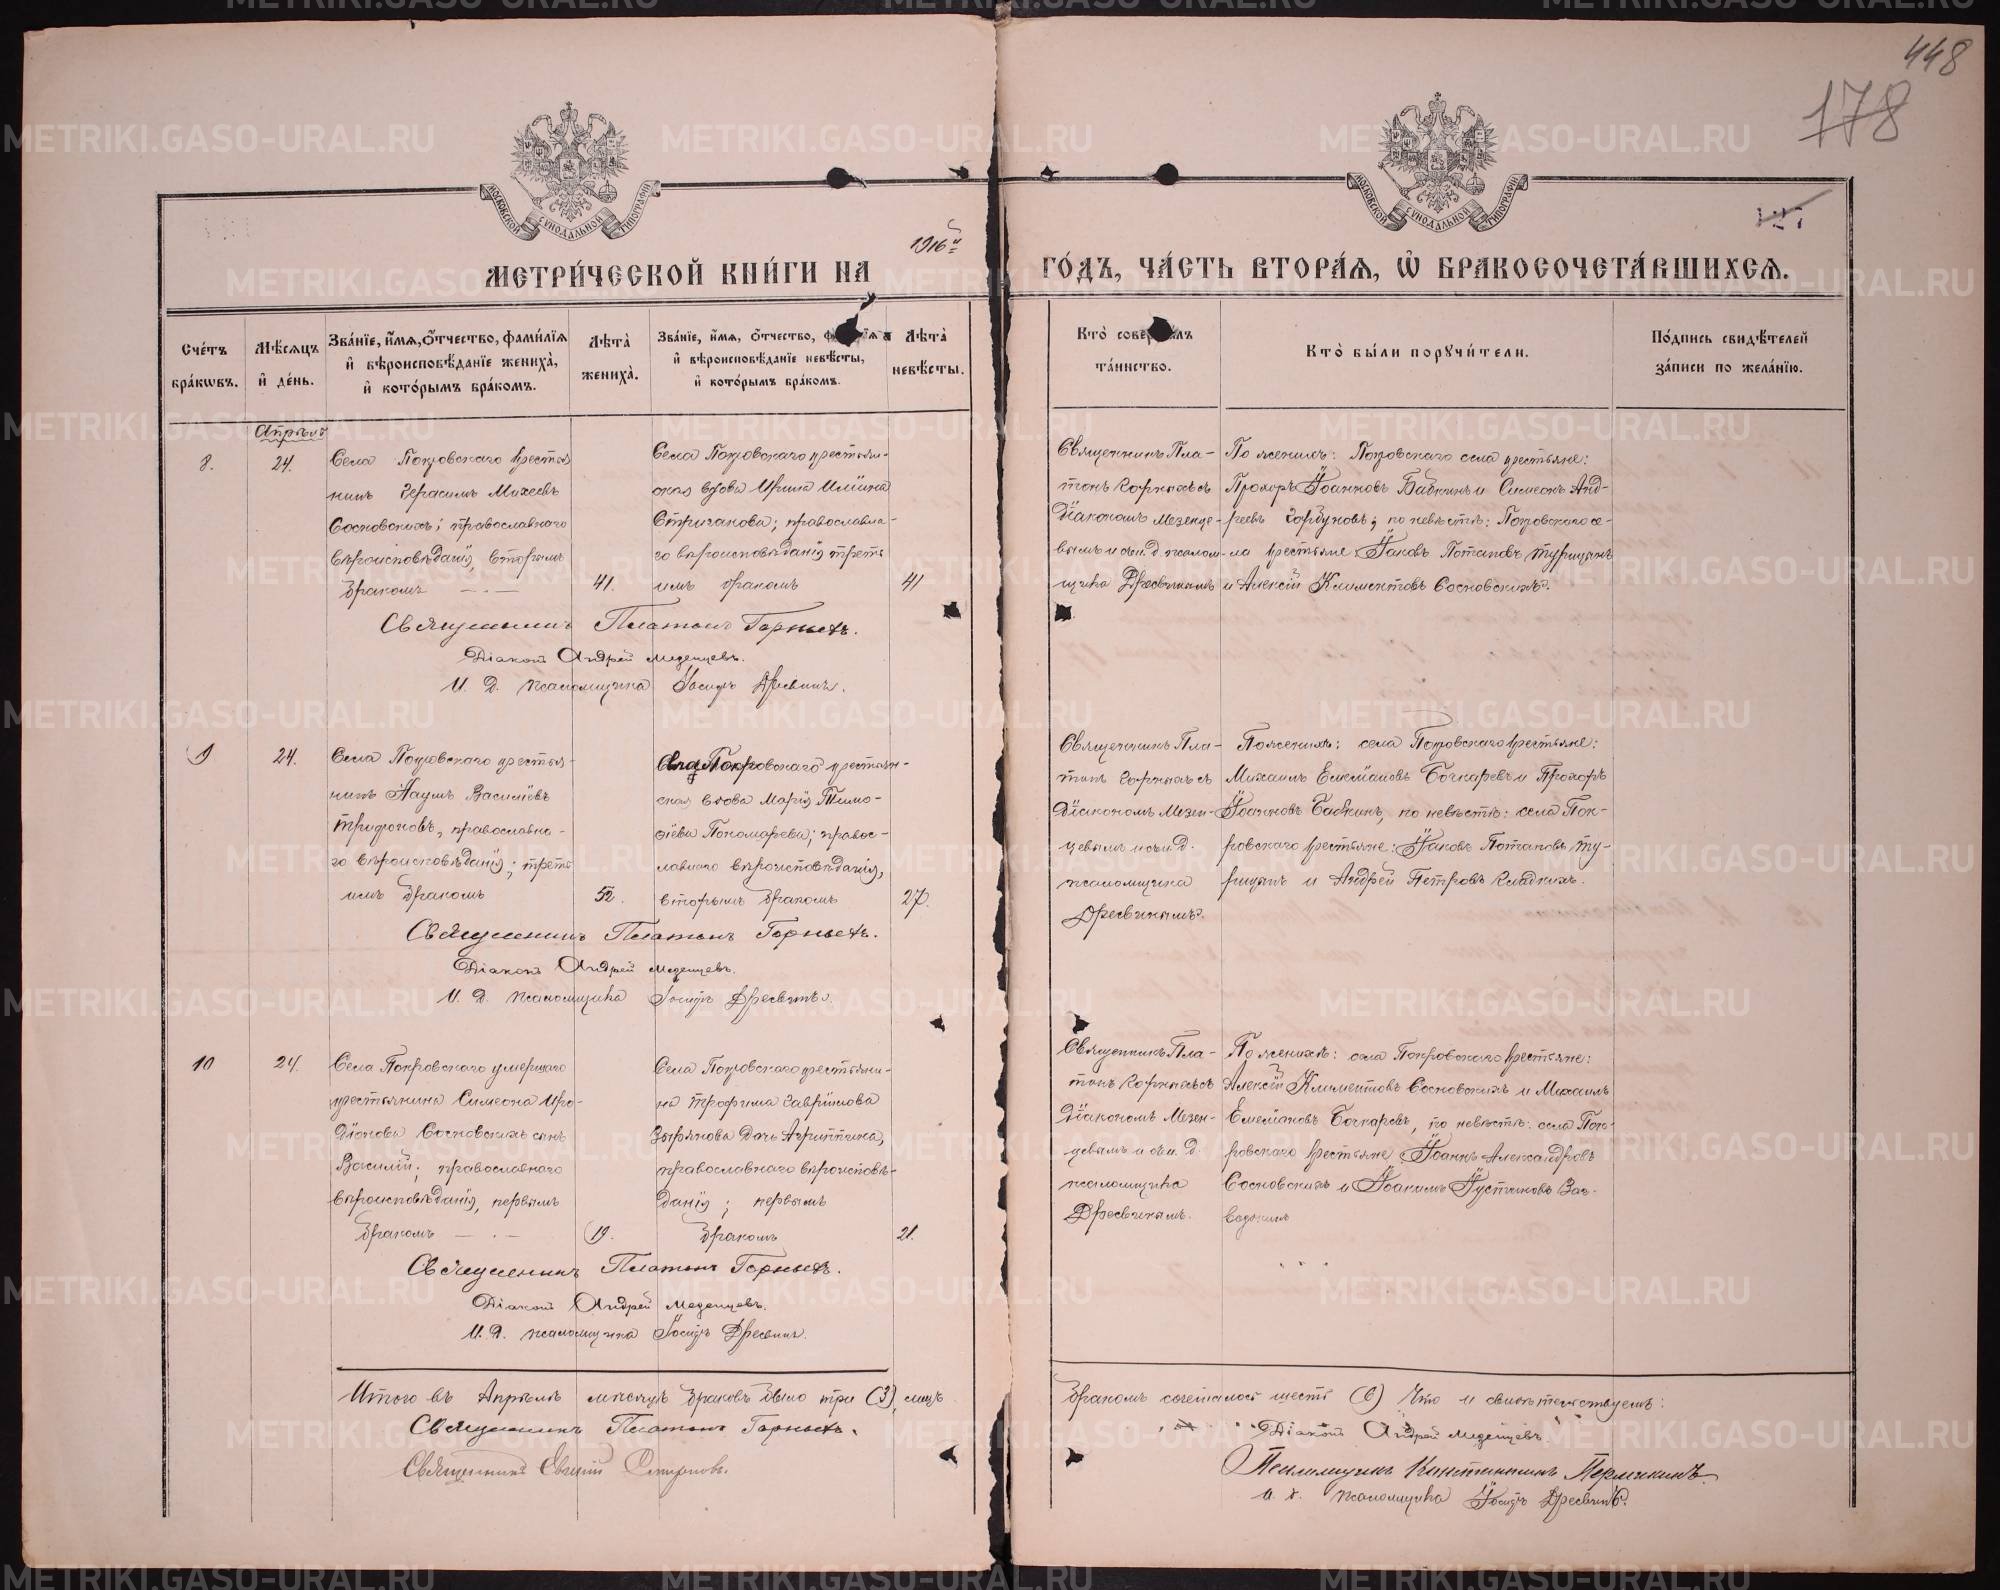 448
178
МОСКОВСКОЙ СѴНОДАЛЬНОЙ ТИПОГРАФІИ
МОСКОВСКОЙ СѴНОДАЛЬНОЙ ТИПОГРАФІИ
МЕТРИ́ЧЕСКОЙ КНИ́ГИ НА 1916й ГО́ДЪ, ЧА́СТЬ ВТОРА́Я, Ѽ БРАКОСОЧЕТА́ВШИХСЯ.
Сче́тъ бра́кωвъ.
Мѣ́сяцъ и҆ де́нь.
Зва́нїе, и҆́мя, ѻ҆́тчество, фами́лїя и҆ вѣроисповѣ́данїе жениха̀, и҆ кото́рымъ бра́комъ.
Лѣта̀ жениха̀.
Зва́нїе, и҆́мя, ѻ҆́тчество, фами́лїя и҆ вѣроисповѣ́данїе невѣ́сты, и҆ кото́рымъ бра́комъ.
Лѣта̀ невѣ́сты.
Кто̀ соверша́лъ та́инство.
Кто̀ бы́ли порꙋчи́тели.
По́дпись свидѣ́телей за́писи по жела́нїю.
Апрѣль
8.
24.
Села Покровскаго крестья
нинъ Герасимъ Михеевъ
Сосновскихъ; православнаго
вѣроисповѣданія, вторымъ
бракомъ — . —
41.
Села Покровскаго крестьян-
ская вдова Ирина Ильина
Стриганова; православна-
го вѣроисповѣданія треть
имъ бракомъ
41
Священникъ Пла-
тонъ Горныхъ съ
Діакономъ Мезенце-
вымъ и и. д псалом-
щика Дресвинымъ
По женихѣ: Покровскаго села крестьяне:
Прохоръ Іоанновъ Бабкинъ и Симеонъ Анд-
реевъ Горбуновъ; по невѣстѣ: Покровскаго се-
ла крестьяне Іаковъ Потаповъ Турицынъ
и Алексій Климентовъ Сосновскихъ.
Священникъ Платонъ Горныхъ.
Діаконъ Андрей Мезенцевъ.
И. Д. псаломщика Іосифъ Дресвинъ.
9
24.
Села Покровскаго крестья-
нинъ Наумъ Василіевъ
Трифоновъ, православна-
го вѣроисповѣданія; треть
имъ бракомъ
52.
Села Покровскаго крестьян-
ская вдова Марія Тимо-
фіева Пономарева; правос-
лавнаго вѣроисповѣданія,
вторымъ бракомъ
27.
Священникъ Пла-
тонъ Горныхъ съ
Діакономъ Мезен-
цевымъ и и. д.
псаломщика
Дресвинымъ.
По женихѣ: села Покровскаго крестьяне:
Михаилъ Емеліановъ Бочкаревъ и Прохоръ
Іоанновъ Бабкинъ, по невѣстѣ: села Пок-
ровскаго крестьяне: Іаковъ Потаповъ Ту-
рицынъ и Андрей Петровъ Гладкихъ.
Священникъ Платонъ Горныхъ.
Діаконъ Андрей Мезенцевъ.
И. Д. псаломщика Іосифъ Дресвинъ.
10
24.
Села Покровскаго умершаго
крестьянина Симеона Иро-
діонова Сосновскихъ сынъ
Василій; православнаго
вѣроисповѣданія, первымъ
бракомъ — . —
19.
Села Покровскаго крестьяни-
на Трофима Гавріилова
Зырянова дочь Агриппина,
православнаго вѣроисповѣ-
данія; первымъ
бракомъ
21.
Священникъ Пла-
тонъ Горныхъ съ
Діакономъ Мезен-
цевымъ и и. д.
псаломщика
Дресвинымъ.
По женихѣ: села Покровскаго крестьяне:
Алексій Климентовъ Сосновскихъ и Михаилъ
Емеліановъ Бочкаревъ, по невѣстѣ: села Пок-
ровскаго крестьяне Іоаннъ Александровъ
Сосновскихъ и Іоакимъ Іустиновъ За-
водкинъ
Священникъ Платонъ Горныхъ.
Діаконъ Андрей Мезенцевъ.
И. Д. псаломщика Іосифъ Дресвинъ.
Итого въ Апрѣлѣ мѣсяцѣ браковъ было три (3), лицъ бракомъ сочеталось шесть (6) Что и свидѣтельствуемъ:
Священникъ Платонъ Горныхъ.
Діаконъ Андрей Мезенцевъ.
Священникъ Евгеній Смирновъ.
Псаломщикъ Константинъ Пермикинъ.
и. д. псаломщика Іосифъ Дресвинъ.
METRIKI.GASO-URAL.RU